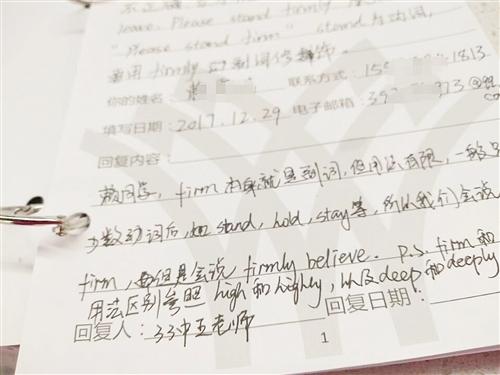 leave. Please stand firmly
"Please stand firm" stand 为动词,
要用 firmly 的副词修饰。
你的姓名: 联系方式: 15 1813
填写日期: 2017.12.29 电子邮箱: 39 373 @
回复内容:
同学, firm 本身就是副词, 但用法有限, 一般
少数动词后, 如 stand, hold, stay 等, 所以我们会说
firm, 但是会说 firmly believe. P.S firm 和
用法区别参照 high 和 highly, 以及 deep 和 deeply
回复人: 33中王老师 回复日期:
1